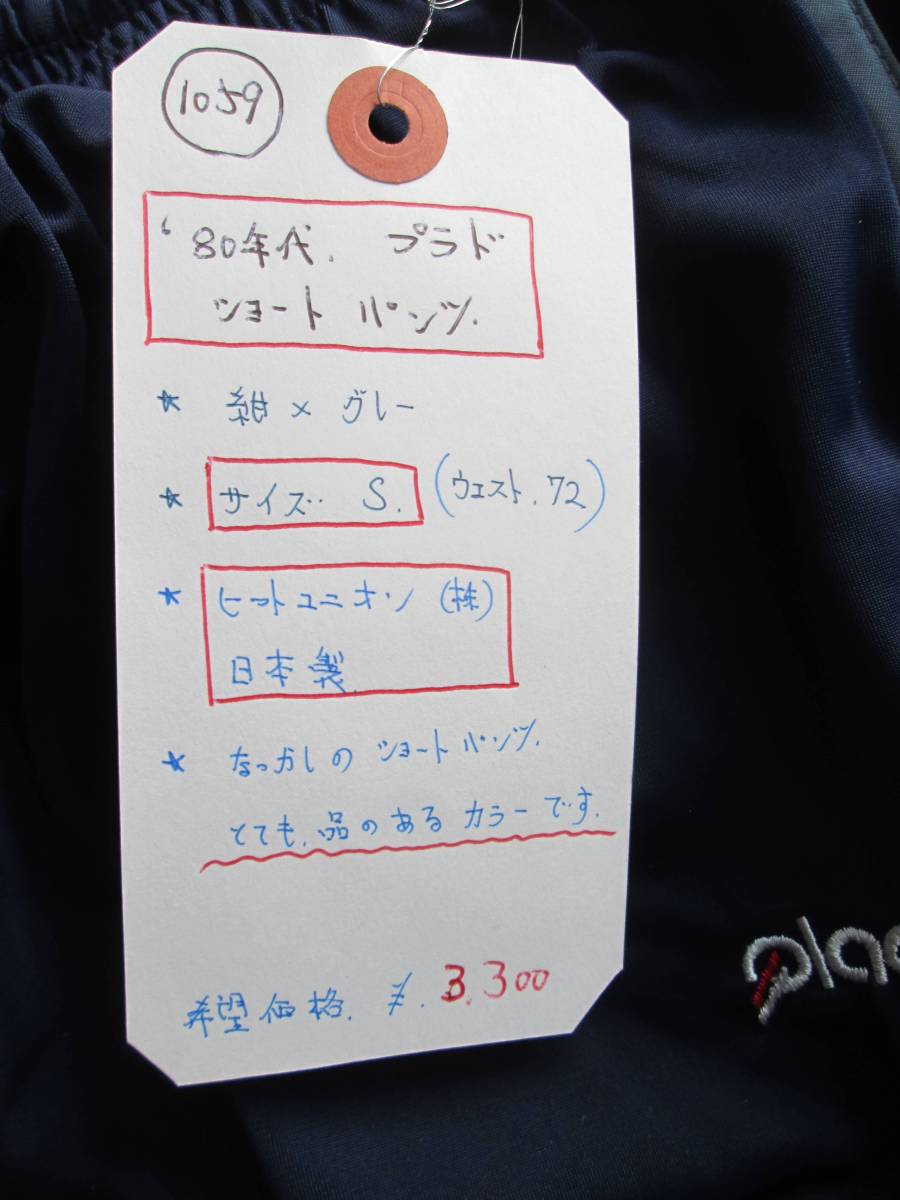 1059
'80年代. プラド
ショート パンツ.
★ 紺×グレー
★ サイズ S. (ウエスト.72)
★ ヒットユニオン(株)
日本製.
★ なつかしの ショートパンツ.
とても.品のあるカラーです.
希望価格. ¥.3.300